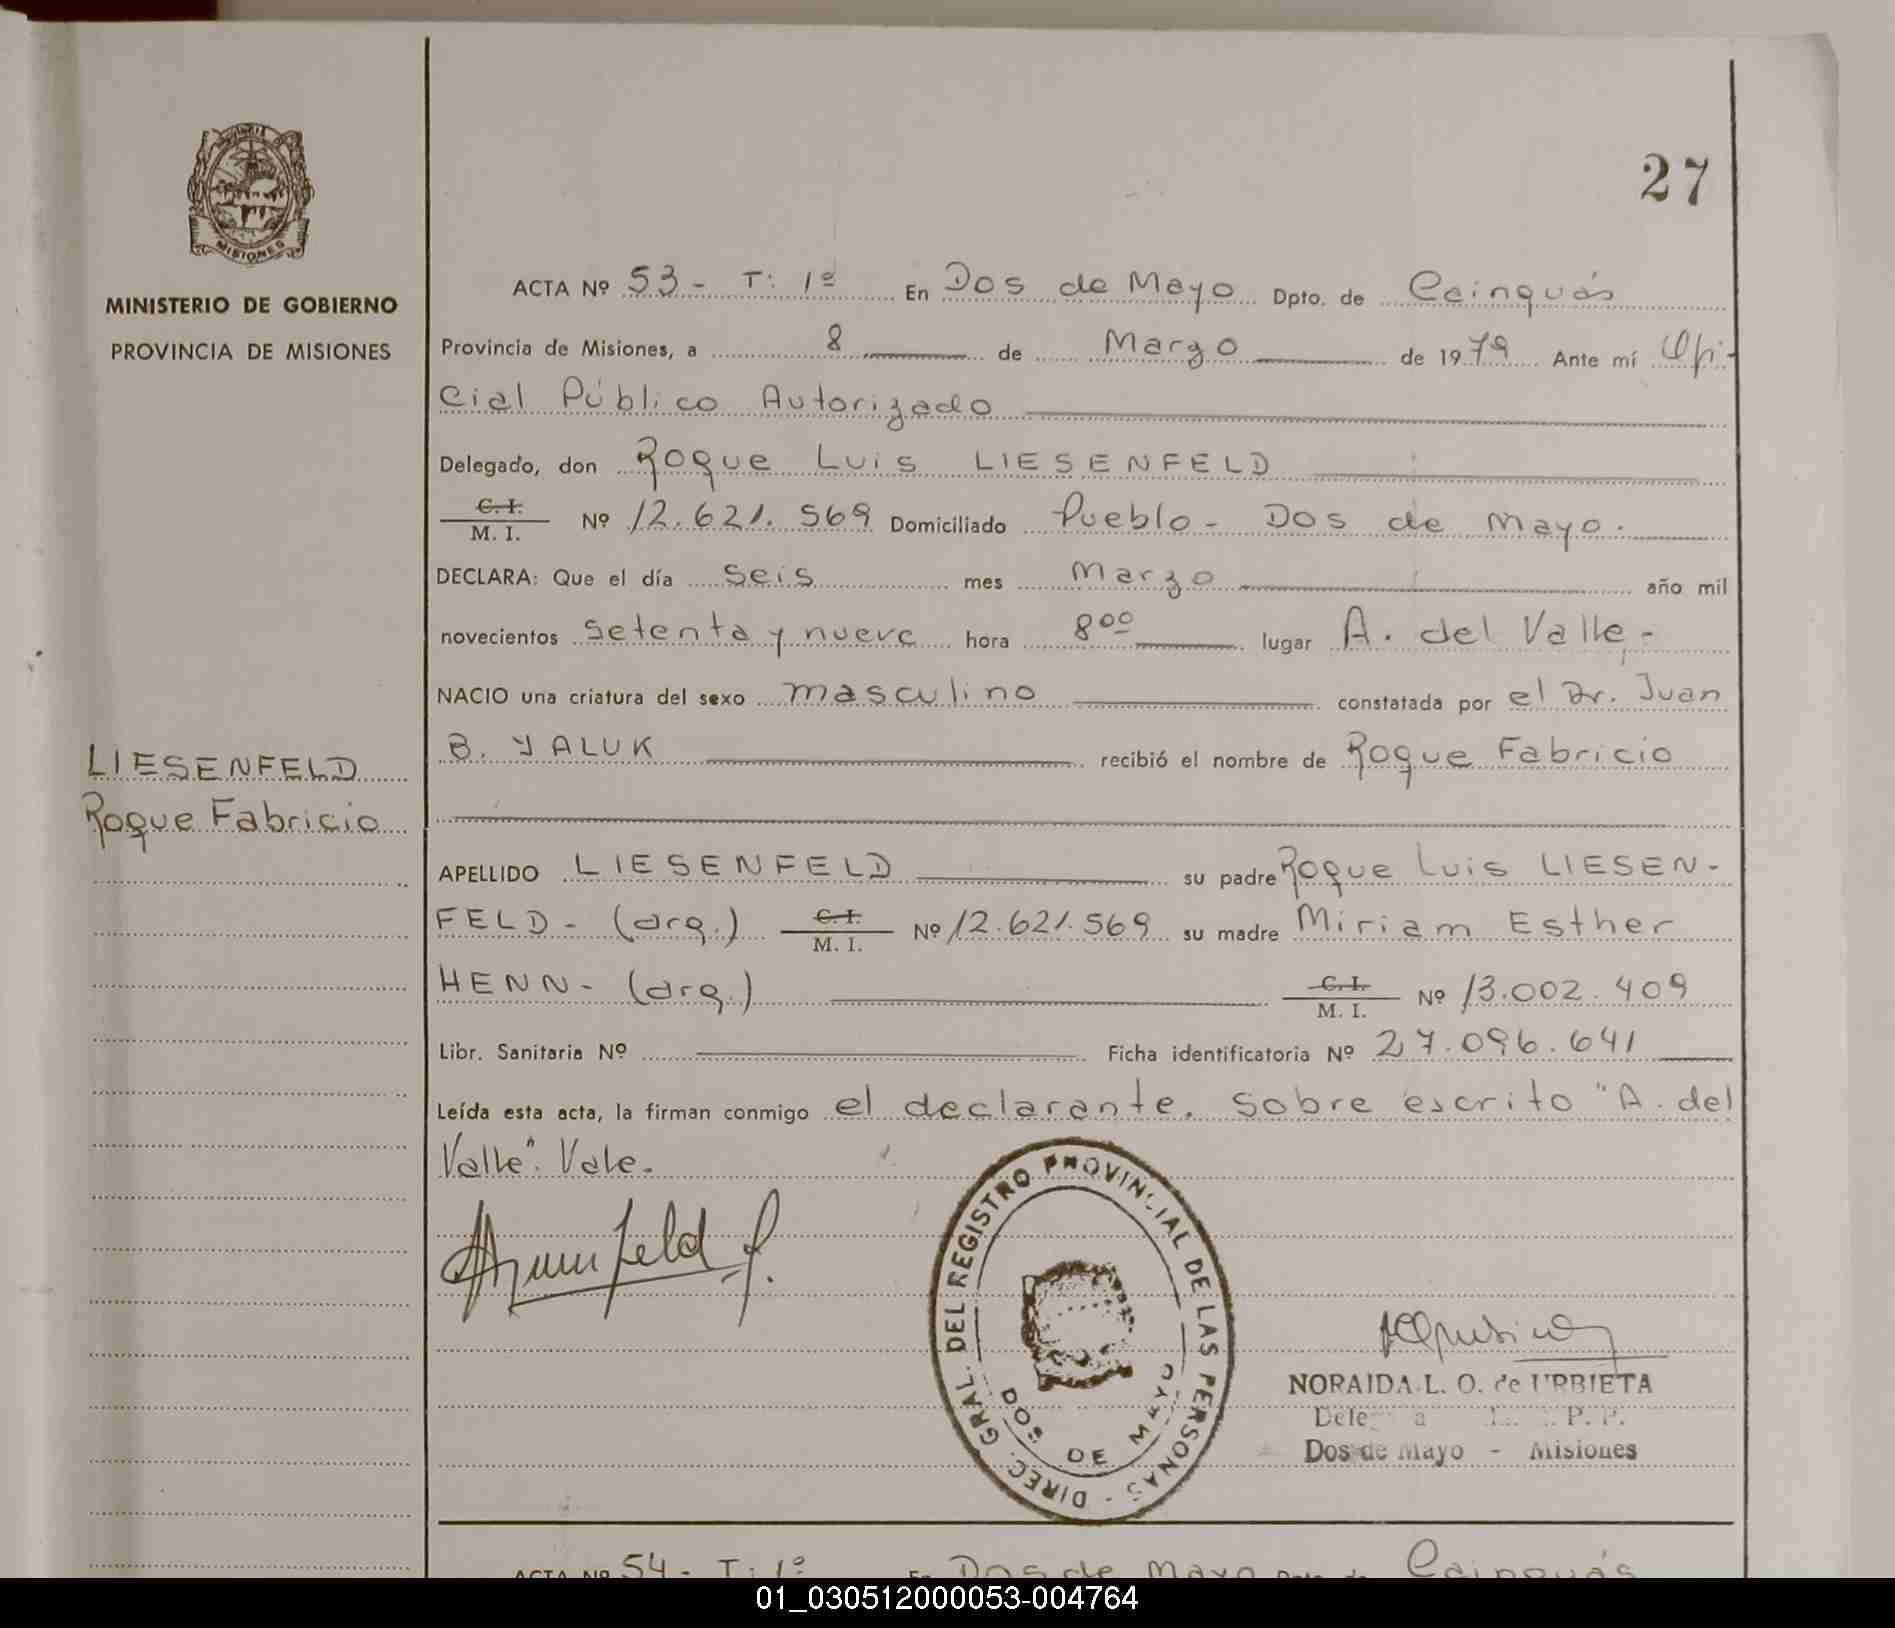 27
MISIONES
MINISTERIO DE GOBIERNO
PROVINCIA DE MISIONES
LIESENFELD
Roque Fabricio
ACTA Nº 53 - T: 1º En Dos de Mayo Dpto. de Cainguás
Provincia de Misiones, a 8 de Marzo de 1979 Ante mí Ofi-
cial Público Autorizado
Delegado, don Roque Luis LIESENFELD
C. I.
M. I. Nº 12.621.569 Domiciliado Pueblo - Dos de Mayo.
DECLARA: Que el día seis mes Marzo año mil
novecientos setenta y nueve hora 8⁰⁰ lugar A. del Valle -
NACIO una criatura del sexo masculino constatada por el Dr. Juan
B. YALUK recibió el nombre de Roque Fabricio
APELLIDO LIESENFELD su padre Roque Luis LIESEN-
FELD - (arg.) C. I. M. I. Nº 12.621.569 su madre Miriam Esther
HENN - (arg.) C. I. M. I. Nº 13.002.409
Libr. Sanitaria Nº Ficha identificatoria Nº 27.096.641
Leída esta acta, la firman conmigo el declarante. Sobre escrito "A. del
Valle". Vale.
DIREC. GRAL. DEL REGISTRO PROVINCIAL DE LAS PERSONAS -
DOS DE MAYO
NORAIDA L. O. de URBIETA
P. P.
Dos de Mayo - Misiones
ACTA Nº 54 - T: 1º En Dos de Mayo Dpto. de Cainguás
01_030512000053-004764